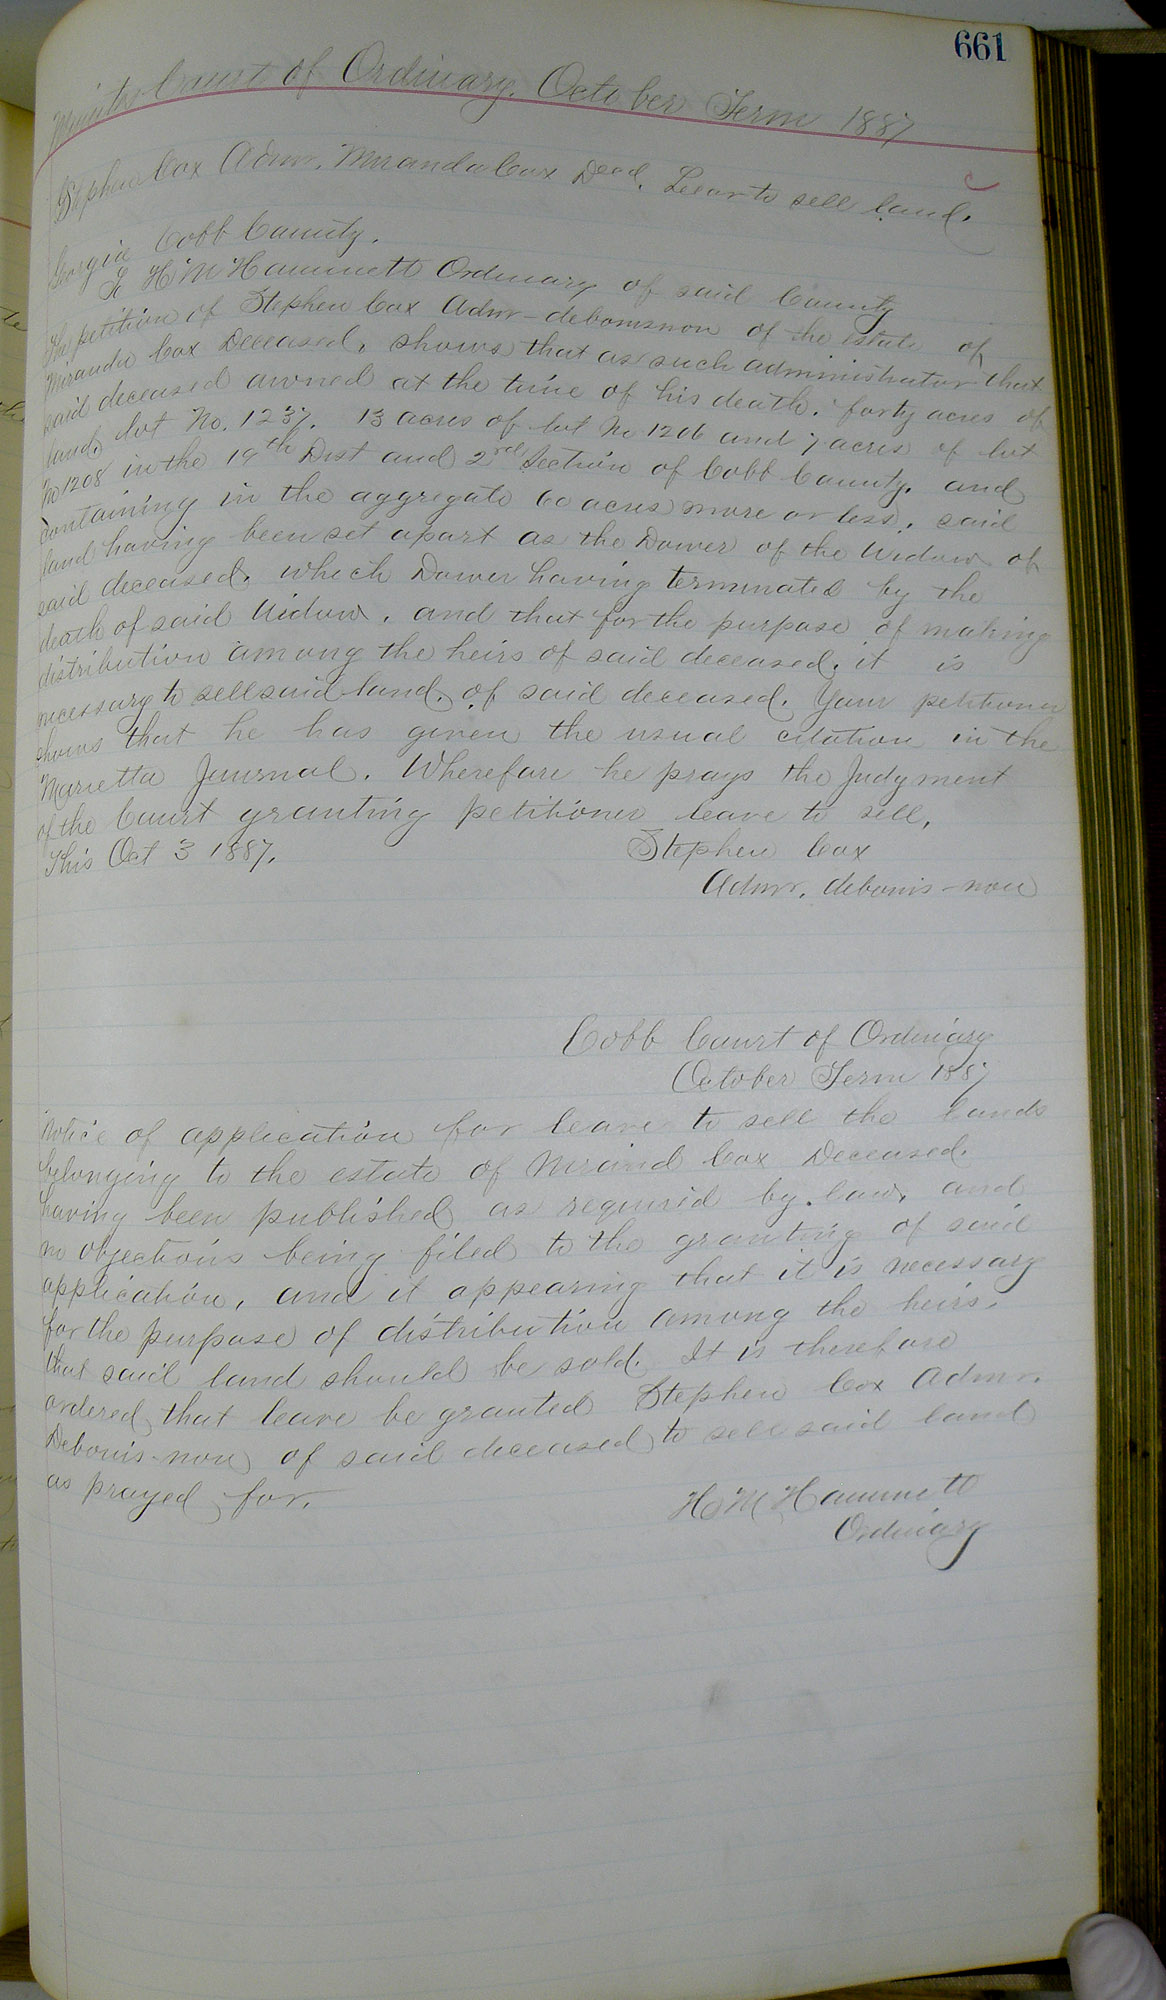 661
Minutes Court of Ordinary, October Term 1887
Stephen Cox Admr, Miranda Cox Decd, Leave to sell land.
Georgia Cobb County.
To H M Hammett Ordinary of said County
The petition of Stephen Cox Admr - debonisnon of the estate of
Miranda Cox Deceased, shows that as such administrator that
said deceased owned at the time of his death, forty acres of
land, lot No. 1237, 13 acres of lot No 1206 and 7 acres of lot
No 1208 in the 19th Dist and 2nd Section of Cobb County, and
containing in the aggregate 60 acres more or less, said
land having been set apart as the Dower of the Widow of
said deceased, which Dower having terminated by the
death of said Widow, and that for the purpose of making
distribution among the heirs of said deceased, it is
necessary to sell said land, of said deceased. Your petitioner
shows that he has given the usual citation in the
Marietta Journal. Wherefore he prays the Judgment
of the Court granting petitioner leave to sell,
This Oct 3 1887.
Stephen Cox
Admr, debonis-non
Cobb Court of Ordinary
October Term 1887
Notice of application for leave to sell the lands
belonging to the estate of Mirand Cox Deceased.
having been published as required by law, and
no objections being filed to the granting of said
application, and it appearing that it is necessary
for the purpose of distribution among the heirs,
that said land should be sold. It is therefore
ordered that leave be granted Stephen Cox Admr.
Debonis-non of said deceased to sell said land
as prayed for.
H M Hammett
Ordinary